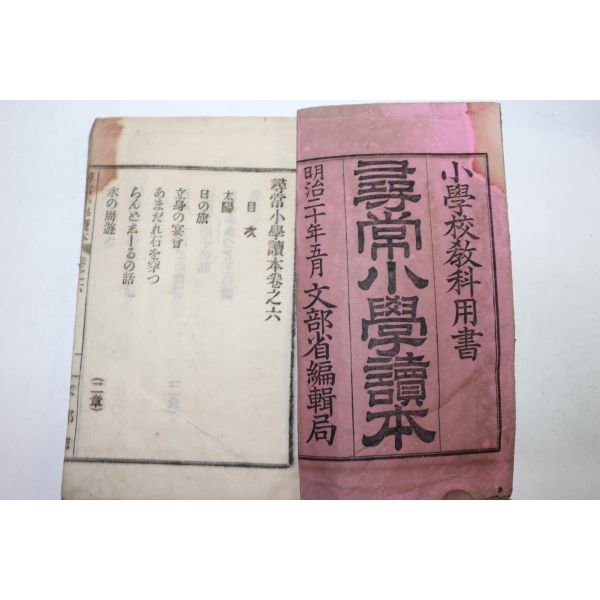 小學校敎科用書
尋常小學讀本
明治二十年五月 文部省編輯局
尋常小學讀本卷之六
目次
太陽
日の旗
立身の宴會
あまだれ石を穿つ
らんどゑーるの話 (二章)
水の周遊